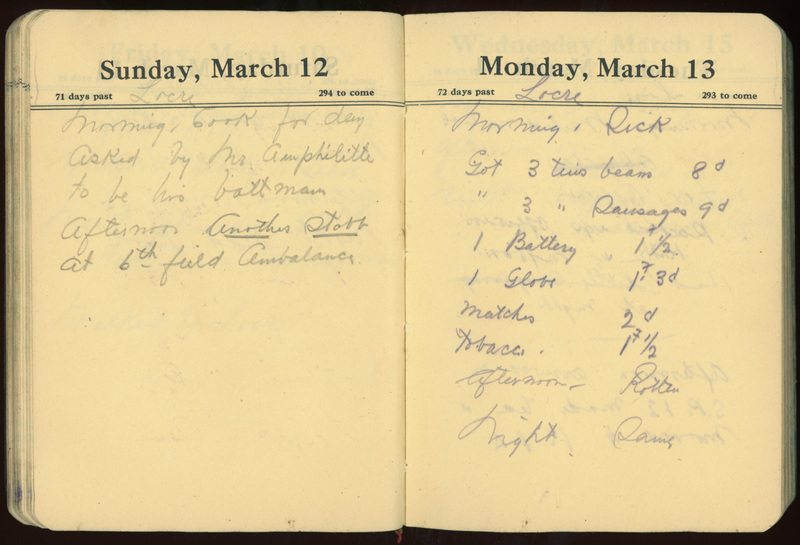 Sunday, March 12
71 days past 294 to come
Locre
Morning, Cook for day
Asked by Mr. Amphilitte
to be his battman
Afternoon Another Stabb
at 6th field Ambalance.
Monday, March 13
72 days past 293 to come
Locre
Morning, Sick
Got 3 tins beans 8d
" 3 " Sausages 9d
1 Battery 1 1/2
1 Globe 1 3d
Matches 2d
Tobacco. 1 1/2
Afternoon - Rotten
Night. Same